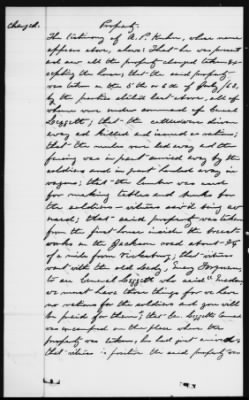 charged. Property.
The testimony of A. P. Kuhn, whose name
appears above, shows: That he was present
and saw all the property charged taken ex-
cepting the horse; that the said property
was taken on the 5th or 6th of July /63,
by the parties stated last above; all of
whom were under command of Genl
Leggett; that the cattle were driven
away and killed and issued as rations;
that the mules were led away and the
fencing was in part carried away by the
soldiers and in part hauled away in
wagons; that the lumber was used
for making tables and bunks for
the soldiers - witness saw it being so
used; that said property was taken
from the first house inside the breast
works on the Jackson road about 3/4
of a mile from Vicksburg; that witness
went with the old lady, Mary Ferguson,
to an General Leggett who said "
we must have these things for we have
no rations for the soldiers and you will
be paid for them;" that Gen Leggett's
was encamped on the place where the
property was taken, he had just arrived
that witness is positive the said property was